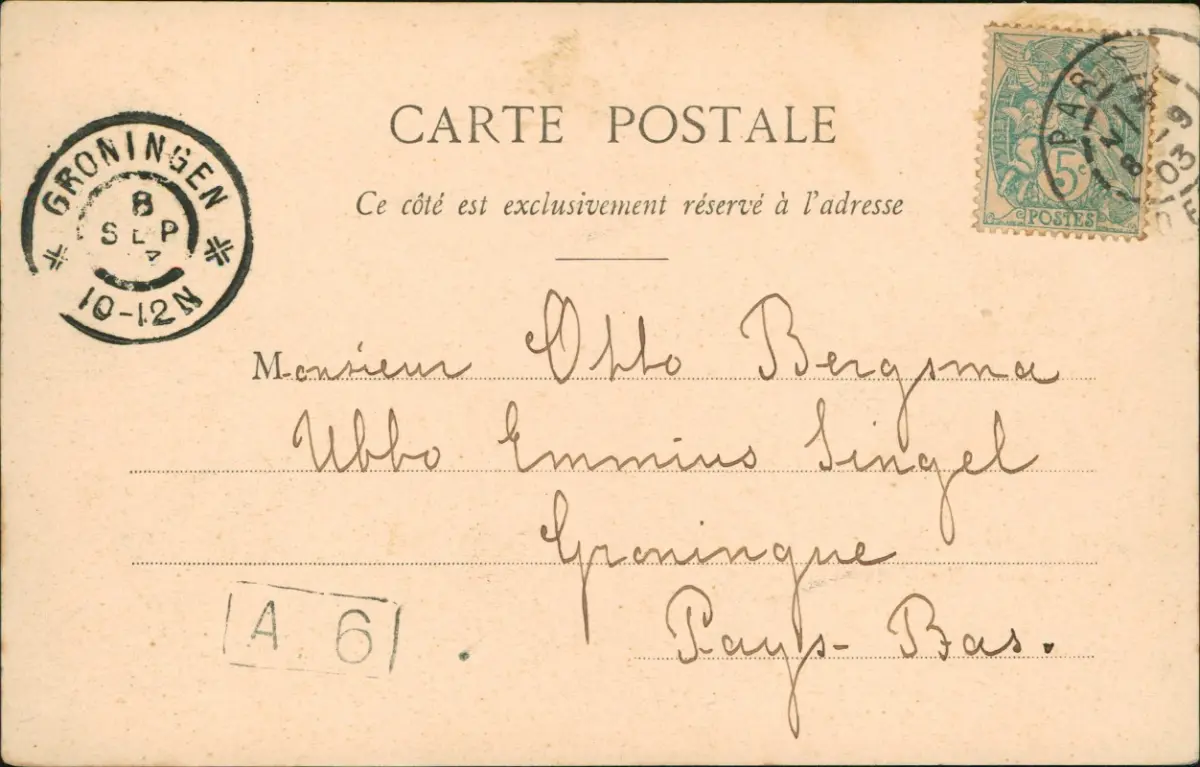 CARTE POSTALE
Ce côté est exclusivement réservé à l'adresse
GRONINGEN
8
SEP
10-12N
5c
POSTES
PARIS
03
Monsieur Otto Bergsma
Ubbo Emmius Singel
Groningue
Pays-Bas.
A 6